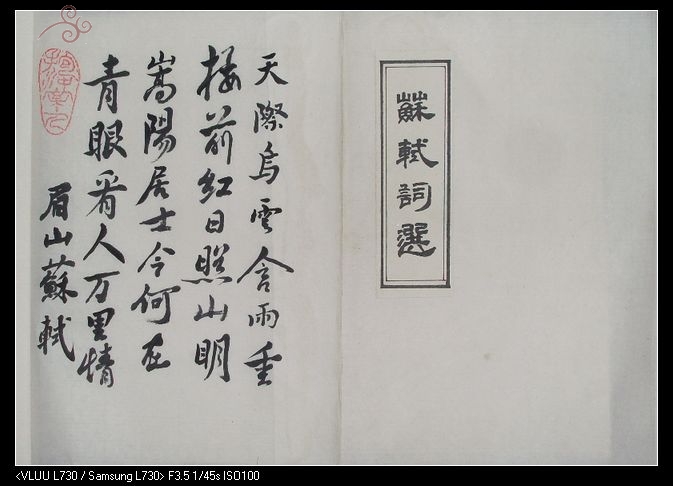 蘇軾詞選
天際烏雲含雨重
楼前紅日照山明
嵩陽居士今何在
青眼看人万里情
眉山蘇軾
<VLUU L730 / Samsung L730> F3.5 1/45s ISO100